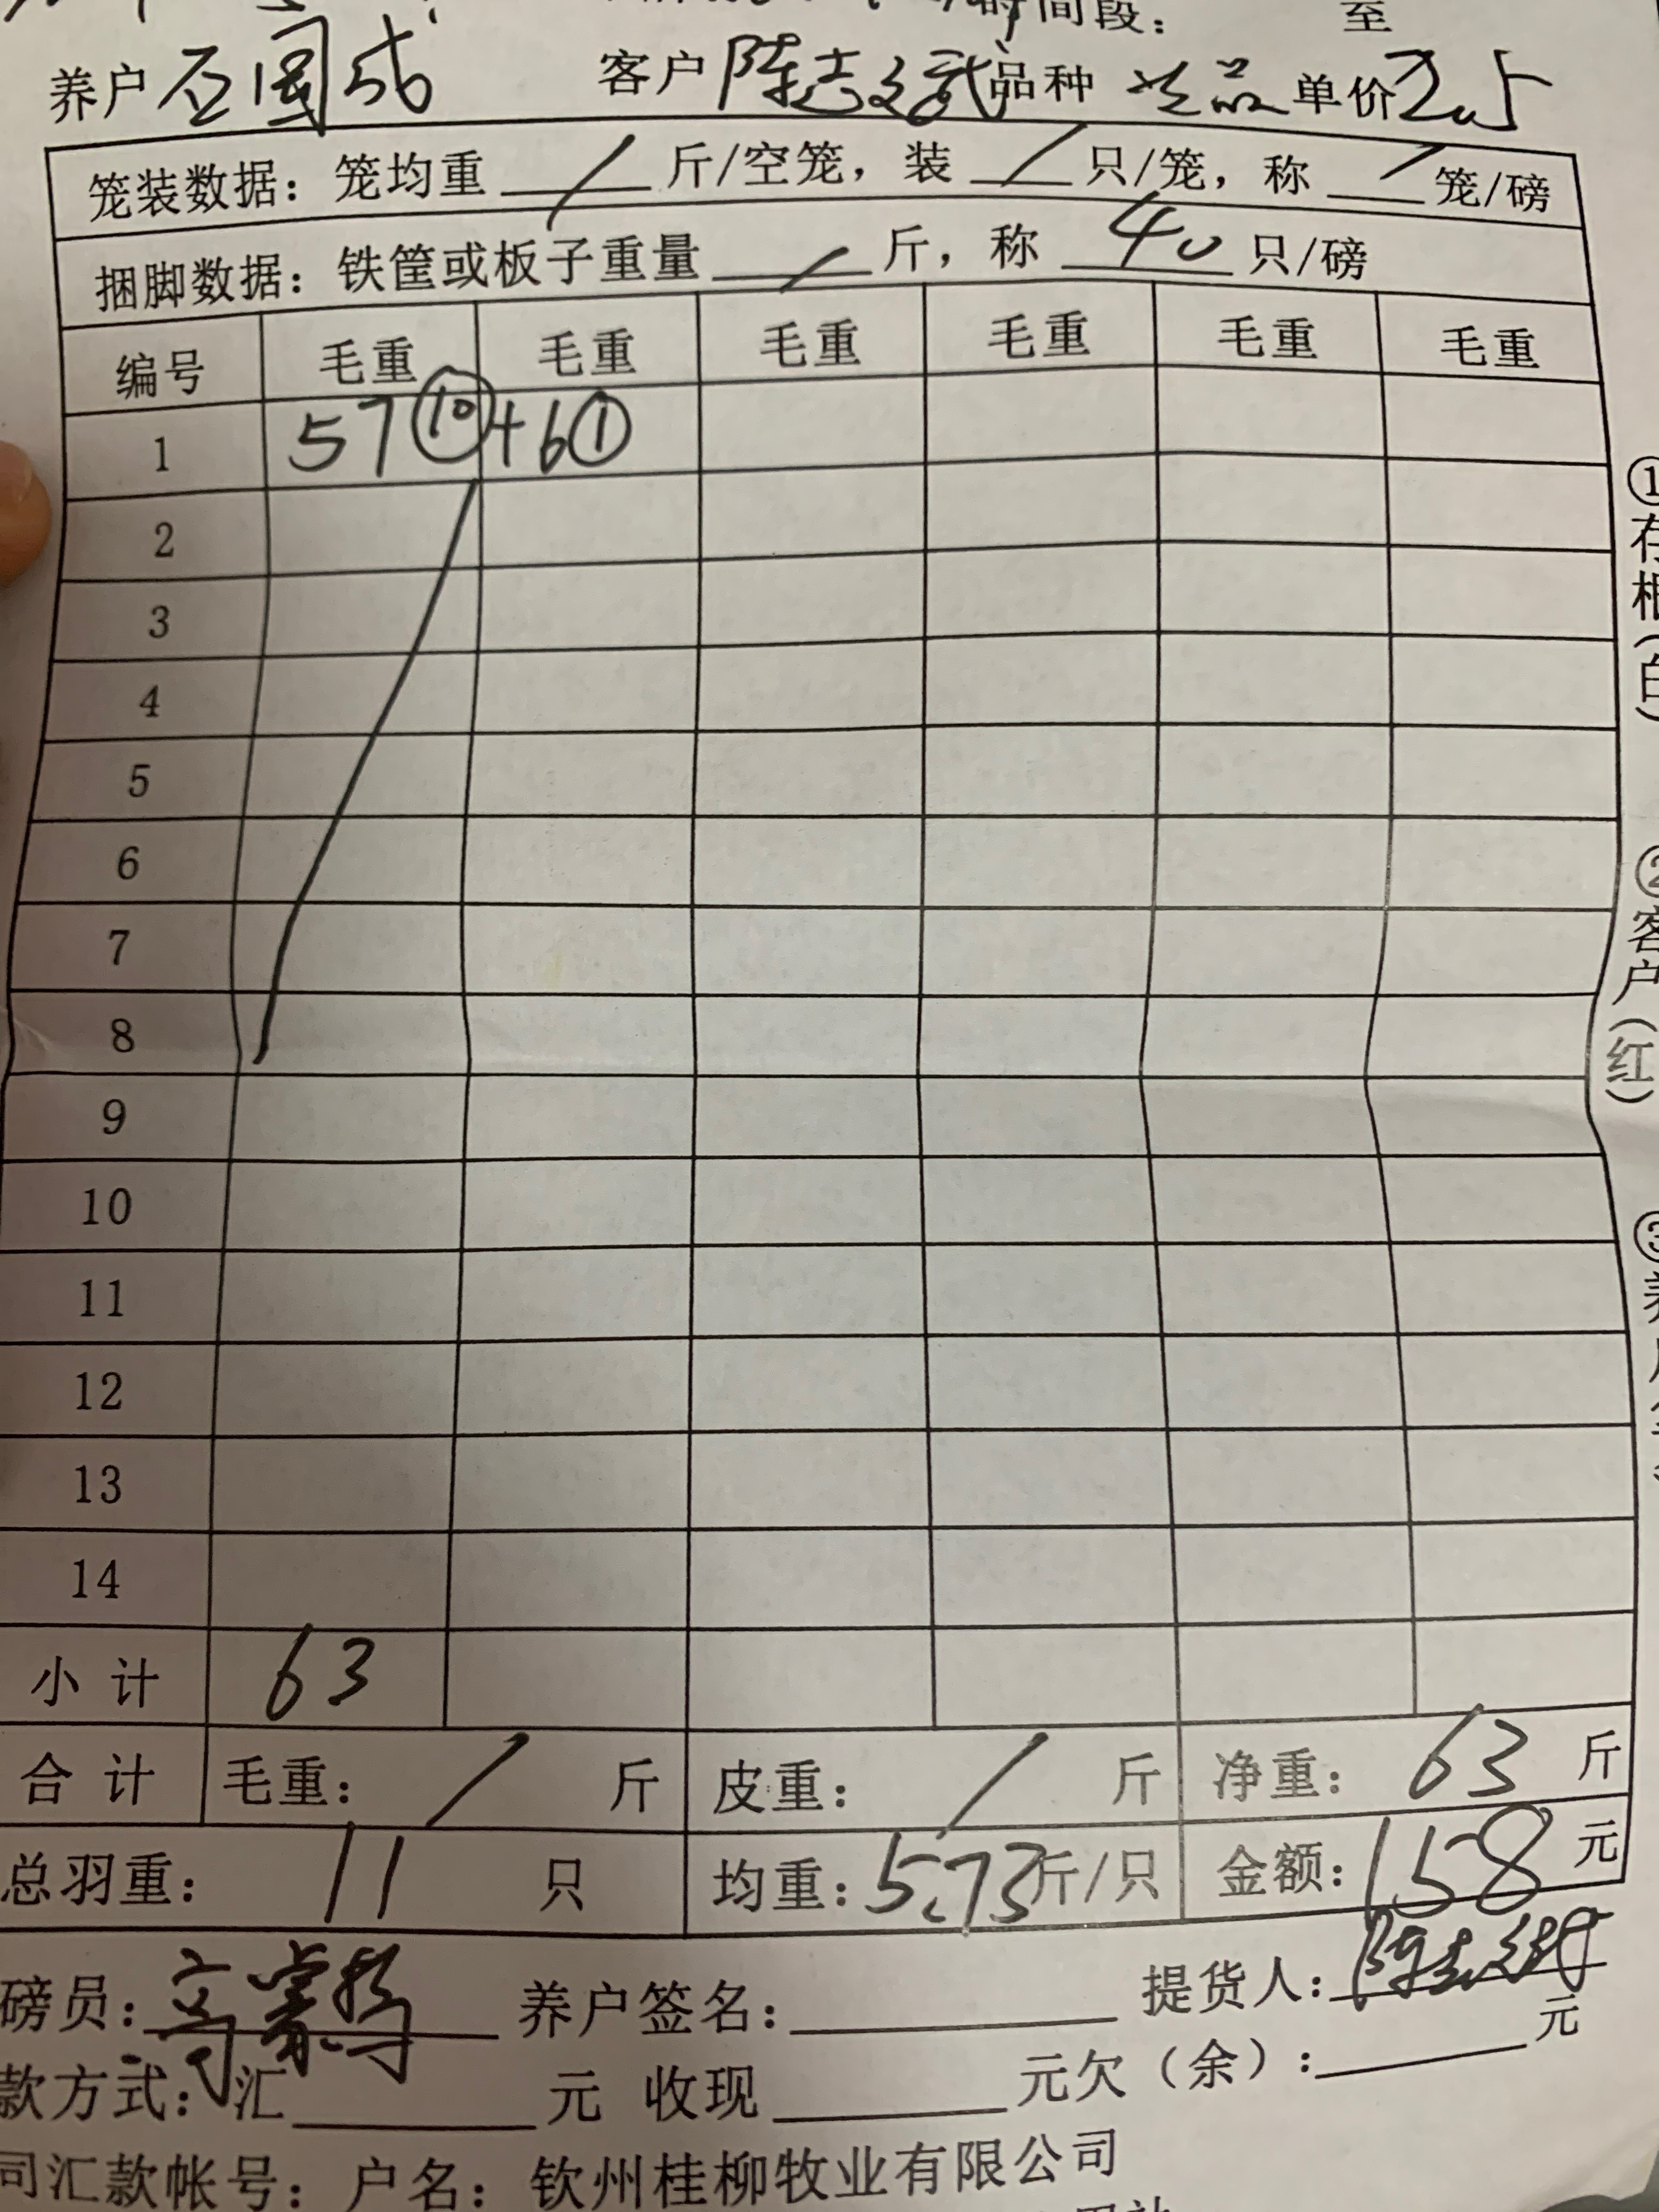 时间段： 至
养户 石国成 客户 陈志文武 品种 次品 单价 2.5
笼装数据：笼均重 / 斤/空笼，装 / 只/笼，称 / 笼/磅
捆脚数据：铁筐或板子重量 / 斤，称 40 只/磅
编号 毛重 毛重 毛重 毛重 毛重 毛重
1 57⑩ +6①
2
3
4
5
6
7
8
9
10
11
12
13
14
小计 63
合计 毛重： / 斤 皮重： / 斤 净重： 63 斤
总羽重： 11 只 均重：5.73斤/只 金额：158 元
磅员： 养户签名： 提货人：
款方式：汇 元 收现 元欠（余）： 元
司汇款帐号：户名：钦州桂柳牧业有限公司
①存根(白)
②客户(红)
③养